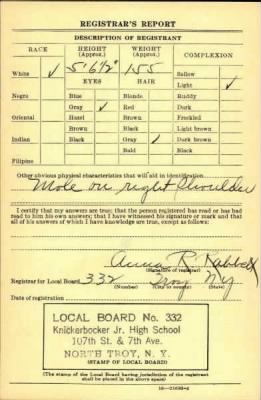 REGISTRAR'S REPORT
DESCRIPTION OF REGISTRANT
RACE HEIGHT (Approx.) WEIGHT (Approx.) COMPLEXION
White ✓ 5' 6½" 155 Sallow
EYES HAIR Light ✓
Negro Blue Blonde Ruddy
Gray ✓ Red Dark
Oriental Hazel Brown Freckled
Brown Black Light brown
Indian Black Gray ✓ Dark brown
Bald Black
Filipino
Other obvious physical characteristics that will aid in identification
Mole on right Shoulder
I certify that my answers are true; that the person registered has read or has had
read to him his own answers; that I have witnessed his signature or mark and that
all of his answers of which I have knowledge are true, except as follows:
Anna R.
(Signature of registrar)
Registrar for Local Board 332 Troy NY
(Number) (City or county) (State)
Date of registration
LOCAL BOARD No. 332
Knickerbocker Jr. High School
107th St. & 7th Ave.
NORTH TROY, N. Y.
(STAMP OF LOCAL BOARD)
(The stamp of the Local Board having jurisdiction of the registrant
shall be placed in the above space)